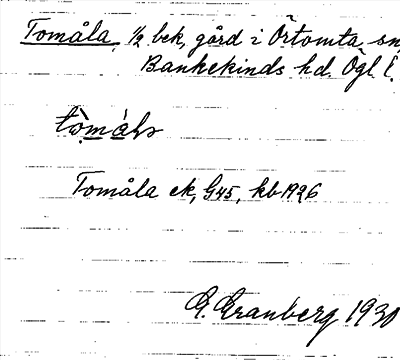 Tomåla, 1/2 bek, gård i Örtomta sn,
Bankekinds hd. Ögl.
Tomåla ek, G45, kb 1926
G. Granberg 1930